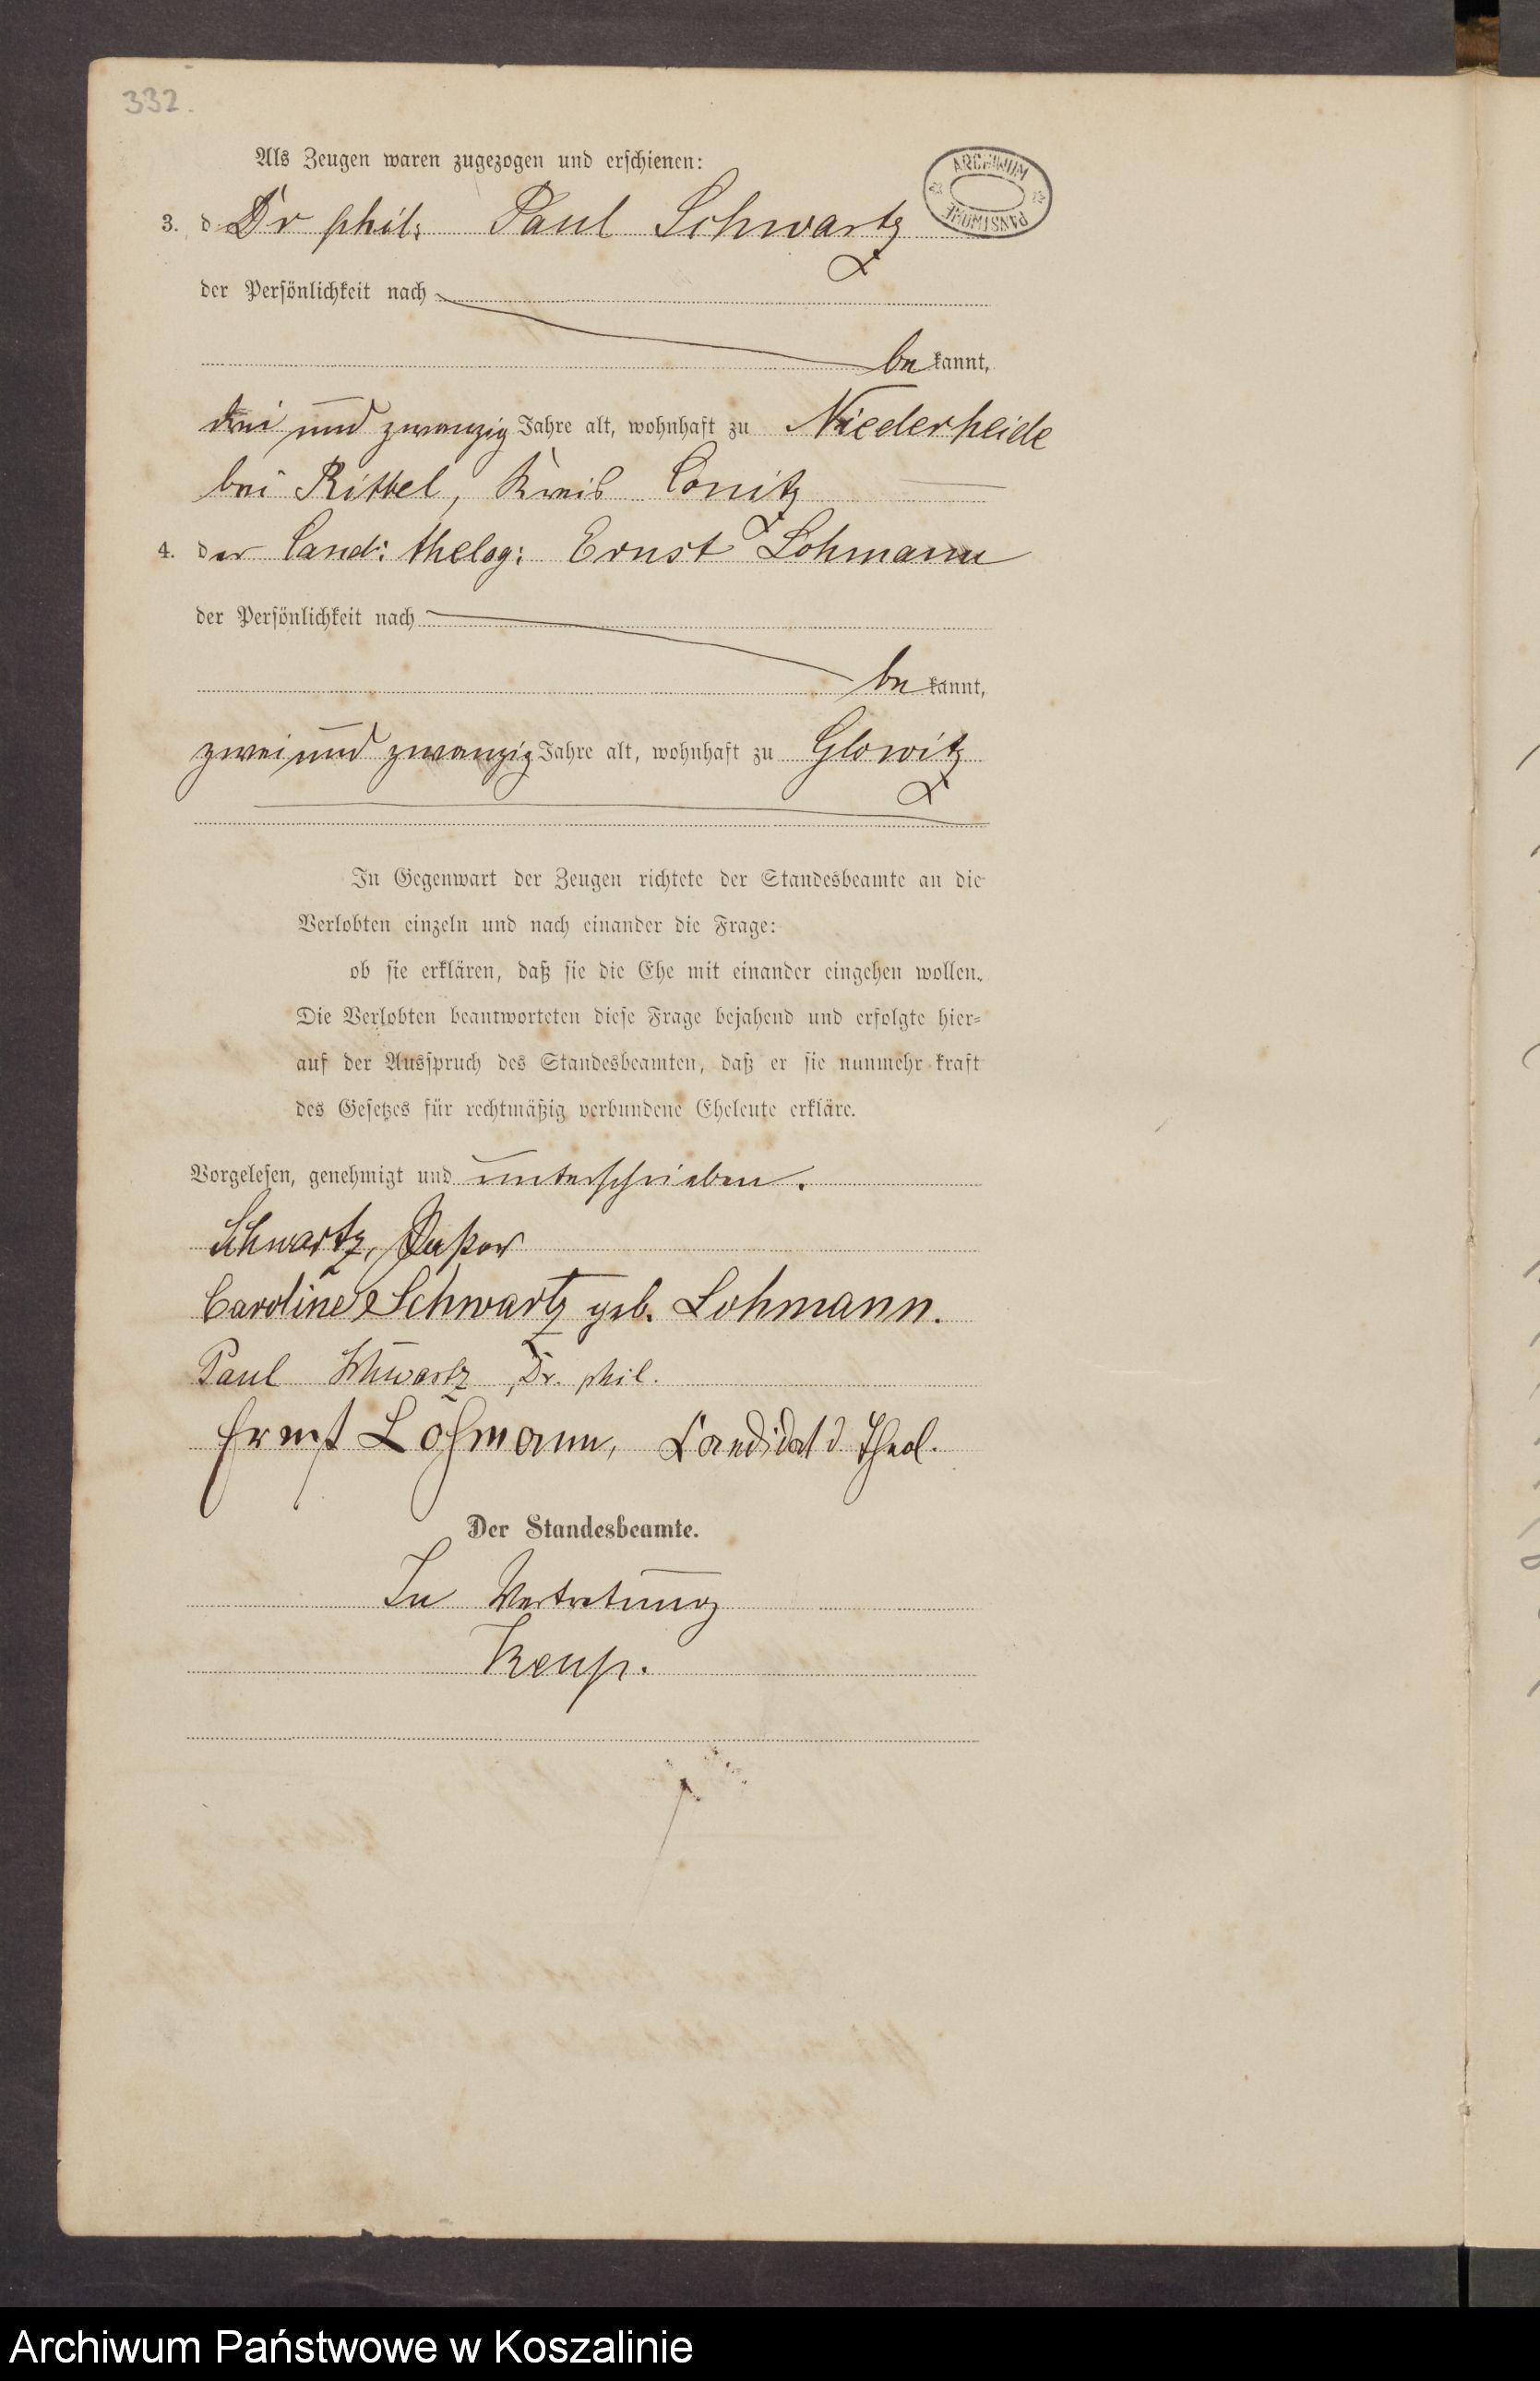 332.
Als Zeugen waren zugezogen und erschienen:
ARCHIWUM PAŃSTWOWE
3. d Dr phil: Paul Schwartz
der Persönlichkeit nach
be kannt,
drei und zwanzig Jahre alt, wohnhaft zu Niederheide
bei Rittel, Kreis Conitz
4. der Cand: thelog: Ernst Lohmann
der Persönlichkeit nach
be kannt,
zwei und zwanzig Jahre alt, wohnhaft zu Glowitz
In Gegenwart der Zeugen richtete der Standesbeamte an die
Verlobten einzeln und nach einander die Frage:
ob sie erklären, daß sie die Ehe mit einander eingehen wollen.
Die Verlobten beantworteten diese Frage bejahend und erfolgte hier-
auf der Ausspruch des Standesbeamten, daß er sie nunmehr kraft
des Gesetzes für rechtmäßig verbundene Eheleute erkläre.
Vorgelesen, genehmigt und unterschrieben.
Schwartz, Pastor
Caroline Schwartz geb. Lohmann.
Paul Schwartz, Dr. phil.
Ernst Lohmann, Candidat d. Theol.
Der Standesbeamte.
In Vertretung
Archiwum Państwowe w Koszalinie